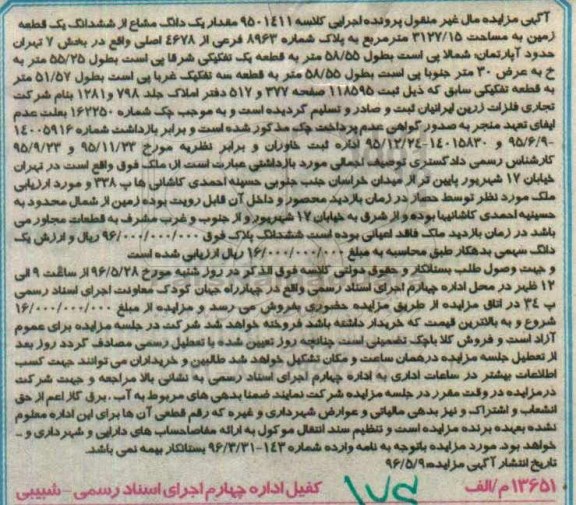 آگهی مزایده مال غیر منقول پرونده اجرایی کلاسه ۹۵۰۱۴۱۱ مقدار یک دانگ مشاع از ششدانگ یک قطعه
زمین به مساحت ۳۱۲۷/۱۵ مترمربع به پلاک شماره ۸۹۶۳ فرعی از ۴۶۷۸ اصلی واقع در بخش ۷ تهران
حدود آپارتمان، شمالا پی است بطول ۵۸/۵۵ متر به قطعه یک تفکیکی شرقا پی است بطول ۵۵/۲۵ متر به
خ به عرض ۳۰ متر جنوبا پی است بطول ۵۸/۵۵ متر به قطعه سه تفکیک غربا پی است بطول ۵۱/۵۷ متر
به قطعه تفکیکی سابق که ذیل ثبت ۱۱۸۵۹۵ صفحه ۳۷۷ و ۵۱۷ دفتر املاک جلد ۷۹۸ و ۱۲۸۱ بنام شرکت
تجاری فلزات زرین ایرانیان ثبت و صادر و تسلیم گردیده است و به موجب چک شماره ۱۶۲۲۵۰ بعلت عدم
ایفای تعهد منجر به صدور گواهی عدم پرداخت چک مذکور شده است و برابر بازداشت شماره ۱۴۰۰۵۹۱۶
-۹۵/۶/۹ و ۱۴۰۱۵۸۳۰-۹۵/۱۲/۲۴ اداره ثبت خاوران و برابر نظریه مورخ ۹۵/۱۱/۲۳ و ۹۵/۹/۲۳
کارشناس رسمی دادگستری توصیف اجمالی مورد بازداشتی عبارت است از: ملک فوق واقع است در تهران
خیابان ۱۷ شهریور پایین تر از میدان خراسان جنب جنوبی حسینه احمدی کاشانی ها پ ۳۳۸ و مورد ارزیابی
ملک مورد نظر توسط حصار در زمان بازدید محصور و داخل آن قابل رویت بوده زمین از شمال محدود به
حسینیه احمدی کاشانیها بوده و از شرق به خیابان ۱۷ شهریور و از جنوب و غرب مشرف به قطعات مجاور می
باشد در زمان بازدید ملک فاقد اعیانی بوده است ششدانگ پلاک فوق ۹۶/۰۰۰/۰۰۰/۰۰۰ ریال و ارزش یک
دانگ سهمی بدهکار طبق محاسبه به مبلغ ۱۶/۰۰۰/۰۰۰/۰۰۰ ریال ارزیابی شده است
و جهت وصول طلب بستانکار و حقوق دولتی کلاسه فوق الذکر در روز شنبه مورخ ۹۶/۵/۲۸ از ساعت ۹ الی
۱۲ ظهر در محل اداره چهارم اجرای اسناد رسمی واقع در چهارراه جهان کودک معاونت اجرای اسناد رسمی
پ ۳۴ در اتاق مزایده از طریق مزایده حضوری بفروش می رسد و مزایده از مبلغ ۱۶/۰۰۰/۰۰۰/۰۰۰
شروع و به بالاترین قیمت که خریدار داشته باشد فروخته خواهد شد شرکت در جلسه مزایده برای عموم
آزاد است و فروش کلا باچک تضمینی است چنانچه روز تعیین شده با تعطیل رسمی مصادف گردد روز بعد
از تعطیل جلسه مزایده درهمان ساعت و مکان تشکیل خواهد شد طالبین و خریداران می توانند جهت کسب
اطلاعات بیشتر در ساعات اداری به اداره چهارم اجرای اسناد رسمی به نشانی بالا مراجعه و جهت شرکت
درمزایده در وقت مقرر در جلسه مزایده شرکت نمایند ضمنا بدهی های مربوط به آب، برق گاز اعم از حق
انشعاب و اشتراک و نیز بدهی مالیاتی و عوارض شهرداری و غیره که رقم قطعی آن ها برای این اداره معلوم
نشده بعهده برنده مزایده است و تنظیم سند انتقال موکول به ارائه مفاصاحساب های دارایی و شهرداری و ..
خواهد بود. مورد مزایده باتوجه به نامه وارده شماره ۱۴۳-۹۶/۳/۳۱ بستانکار بیمه نمی باشد.
تاریخ انتشار آگهی مزایده ۹۶/۵/۹
۱۳۶۵۱/م الف
کفیل اداره چهارم اجرای اسناد رسمی - شبیبی